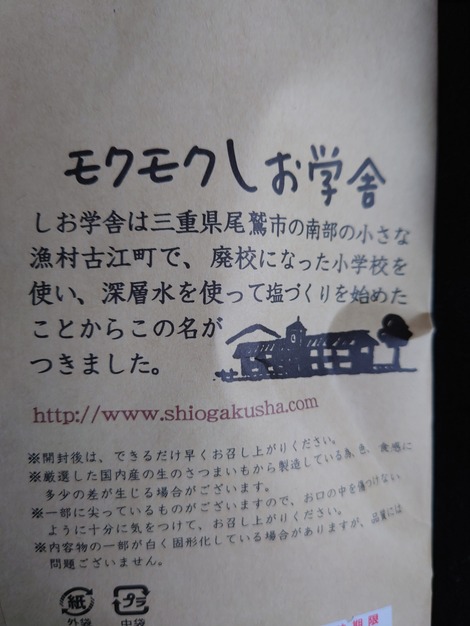 モクモクしお学舎
しお学舎は三重県尾鷲市の南部の小さな
漁村古江町で、廃校になった小学校を
使い、深層水を使って塩づくりを始めた
ことからこの名が
つきました。
http://www.shiogakusha.com
※開封後は、できるだけ早くお召し上がりください。
※厳選した国内産の生のさつまいもから製造している為、色、食感に
多少の差が生じる場合がございます。
※一部に尖っているものがございますので、お口の中を傷つけない
ように十分に気をつけて、お召し上がりください。
※内容物の一部が白く固形化している場合がありますが、品質には
問題ございません。
紙 プラ
外袋 中袋
期限